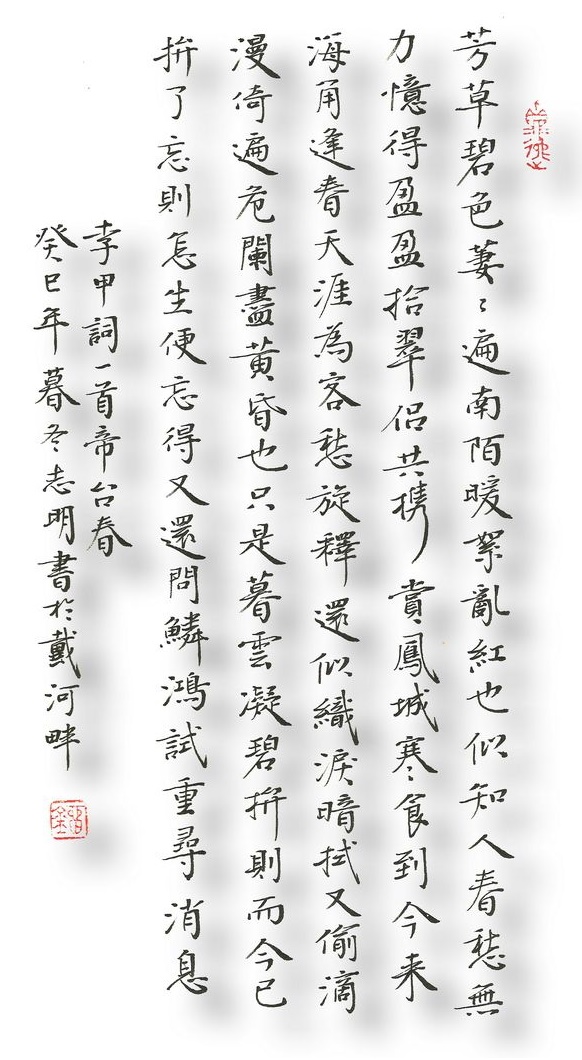 芳草碧色萋〻遍南陌暖絮亂紅也似知人春愁無
力憶得盈盈拾翠侶共携賞鳳城寒食到今来
海角逢春天涯為客愁旋釋還似織淚暗拭又偷滴
漫倚遍危闌盡黄昏也只是暮雲凝碧拚則而今已
拚了忘則怎生便忘得又還問鱗鴻試重尋消息
李甲詞一首帝台春
癸巳年暮冬志明書扵戴河畔